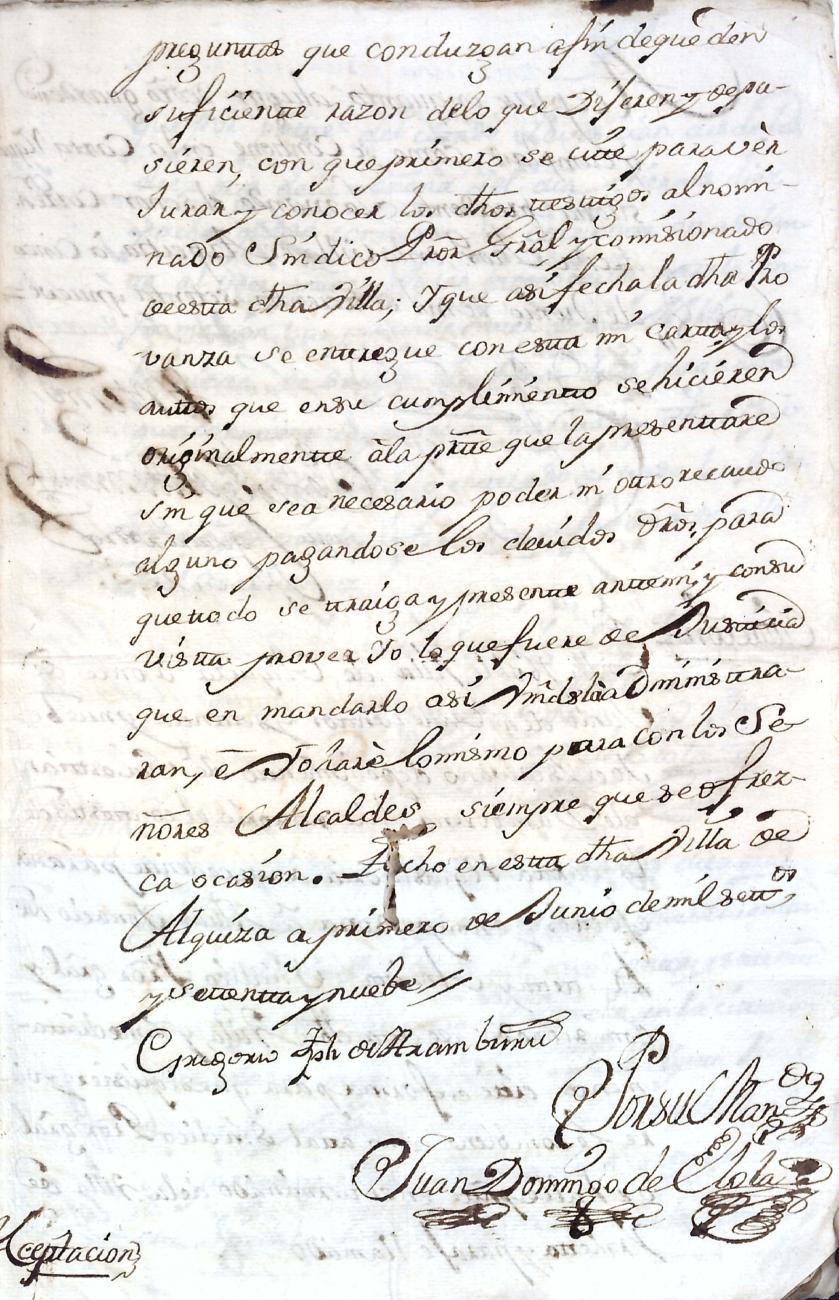 preguntas que conduzgan afin deque den
suficiente razon delo que Dijeren y depu-
sieren, con que primero se cite para vèr
Jurar y conocer los dhos testigos al nomi-
nado Sindico Pror. Gràl y comisionado
de esta dha Villa; Y que asi fecha la dha Pro
vanza se entregue con esta mi carta y los
autos que ensu cumplimiento se hicieren
originalmente àla prte que la presentare
sin què sea necesario poder ni otro recaudo
alguno pagandose los devidos drõs, para
que todo se traiga y presente ante mi, y consu
vista prover Yo lo que fuere de Justicia
que en mandarlo asi Vmds la administra-
ran, è Yo harè lo mismo para con los Se-
ñores Alcaldes siempre que se ofrez-
ca ocasion. Fecho en esta dha Villa de
Alquiza a primero de Junio de mil setts
y settenta y nuebe //
Gregorio Jph de Aramburu
Por su Man.do
Juan Domingo de Elola
Aceptacion